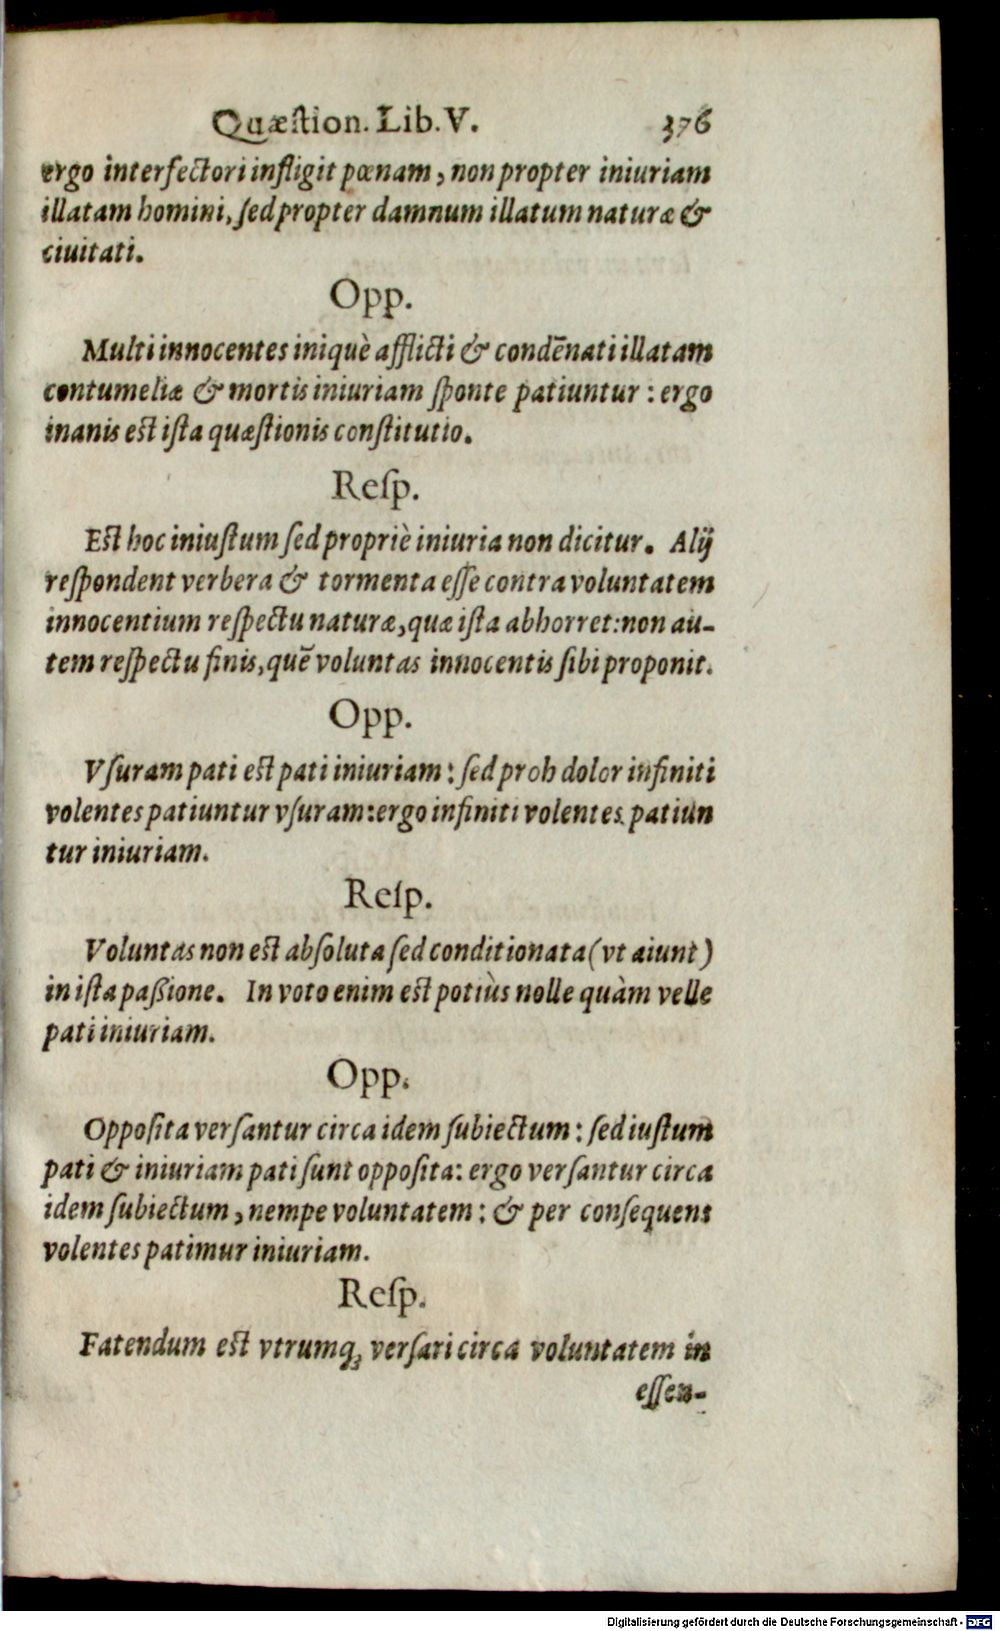 Quæſtion. Lib. V. 376
ergo interfectori infligit pœnam, non propter iniuriam
illatam homini, ſed propter damnum illatum naturæ &
ciuitati.
Opp.
Multi innocentes iniquè afflicti & condẽnati illatam
contumeliæ & mortis iniuriam ſponte patiuntur : ergo
inanis eſt iſta quæſtionis conſtitutio.
Reſp.
Eſt hoc iniuſtum ſed propriè iniuria non dicitur. Alij
reſpondent verbera & tormenta eſſe contra voluntatem
innocentium reſpectu naturæ, quæ iſta abhorret: non au-
tem reſpectu finis, quẽ voluntas innocentis ſibi proponit.
Opp.
Vſuram pati eſt pati iniuriam : ſed proh dolor infiniti
volentes patiuntur vſuram: ergo infiniti volentes patiun
tur iniuriam.
Reſp.
Voluntas non eſt abſoluta ſed conditionata (vt aiunt)
in iſta paßione. In voto enim eſt potiùs nolle quàm velle
pati iniuriam.
Opp.
Oppoſita verſantur circa idem ſubiectum : ſed iuſtum
pati & iniuriam pati ſunt oppoſita: ergo verſantur circa
idem ſubiectum, nempe voluntatem : & per conſequens
volentes patimur iniuriam.
Reſp.
Fatendum eſt vtrumq; verſari circa voluntatem in
eſſen-
Digitalisierung gefördert durch die Deutsche Forschungsgemeinschaft - DFG